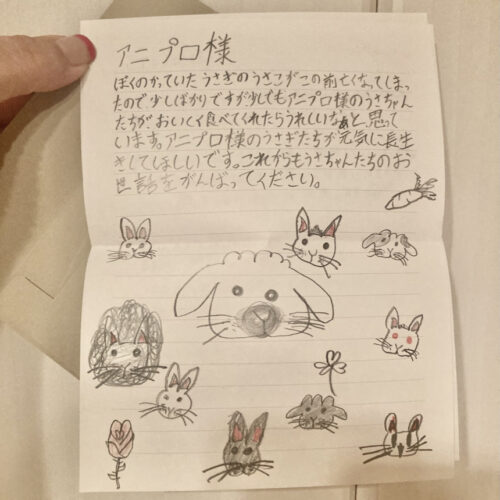 アニプロ様
ぼくのかっていたうさぎのうさこがこの前亡くなってしまっ
たので少しばかりですが少しでもアニプロ様のうさちゃん
たちがおいしく食べてくれたらうれしいなぁと思って
います。アニプロ様のうさぎたちが元気に長生
きしてほしいです。これからもうさちゃんたちのお
世話をがんばってください。